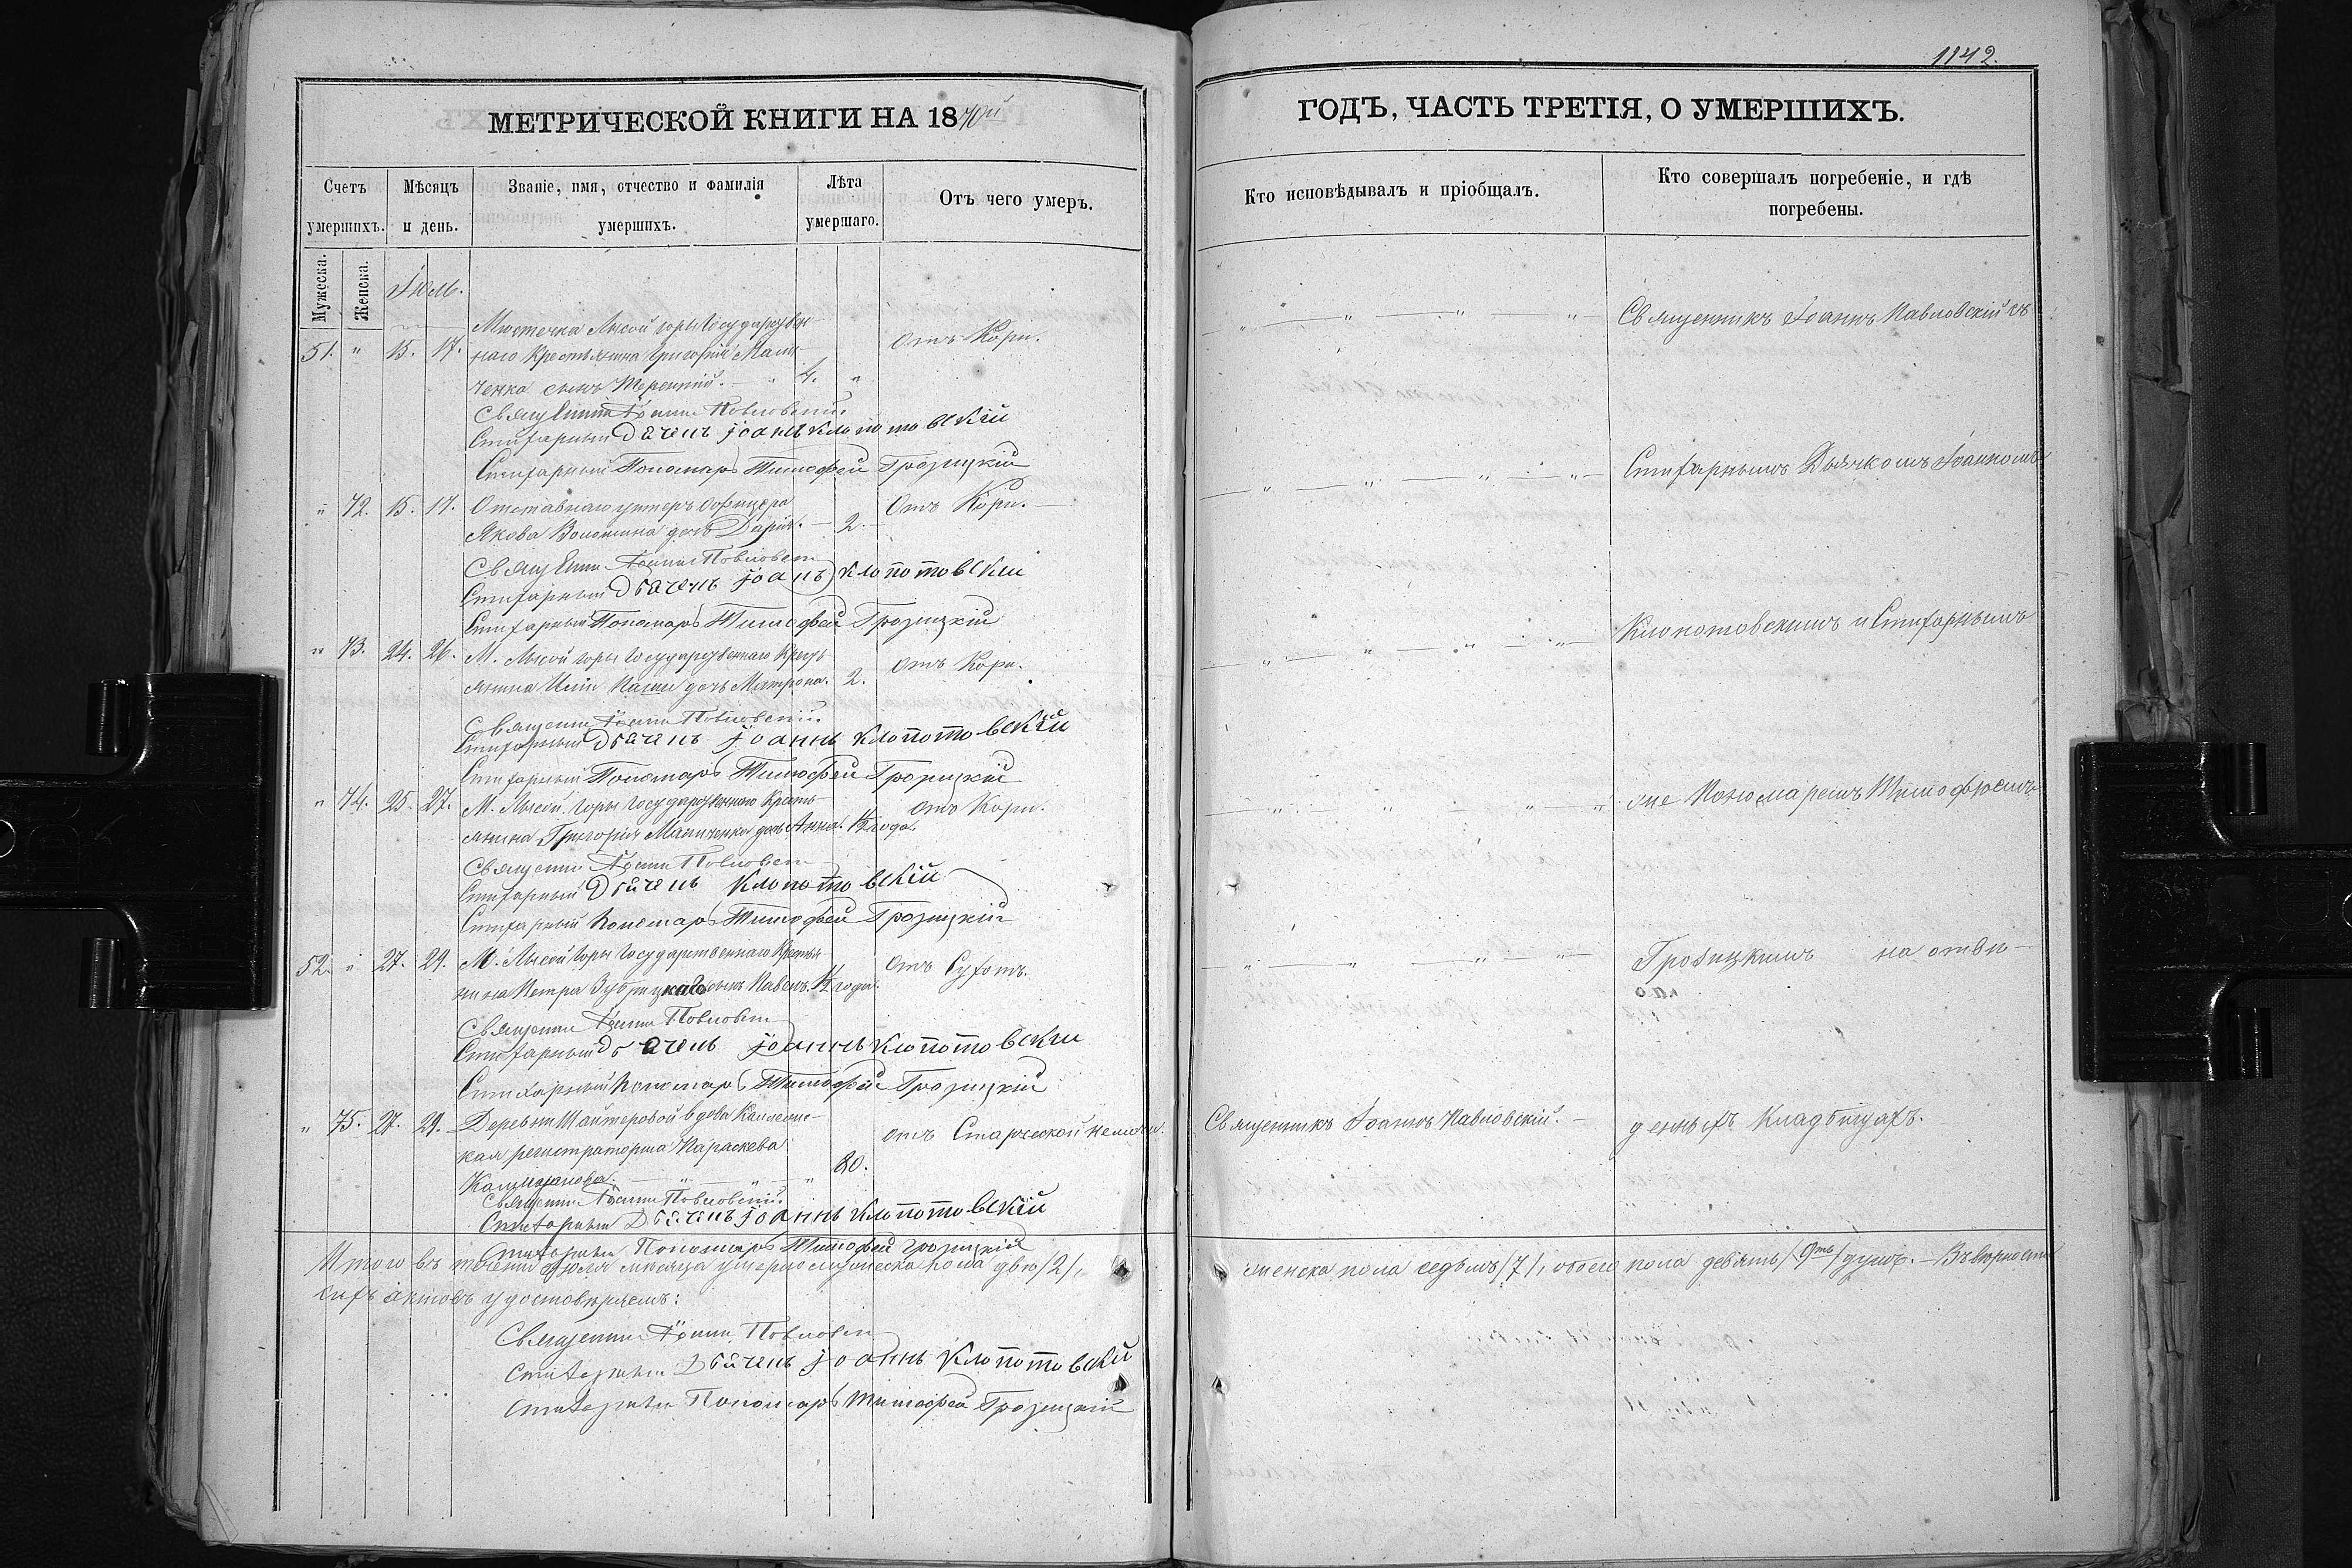 1142.
МЕТРИЧЕСКОЙ КНИГИ НА 1870й
ГОДЪ, ЧАСТЬ ТРЕТІЯ, О УМЕРШИХЪ.
Счетъ умершихъ.
Мѣсяцъ и день.
Званіе, имя, отчество и фамилія умершихъ.
Лѣта умершаго.
Отъ чего умеръ.
Кто исповѣдывалъ и пріобщалъ.
Кто совершалъ погребеніе, и гдѣ погребены.
Мужеска.
Женска.
Іюль.
Мѣстечка Лысой горы Государствен-
51. " 15. 17. наго Крестьянина Григорія Мали-
ченка сынъ Терентій. 4. "
отъ Кори.
Священникъ Іоаннъ Павловскій съ
Священникъ Іоаннъ Павловскій
Стихарный Дьячекъ Іоаннъ Клопотовскій
Стихарный Пономарь Тимофей Грозицкій
" 72. 15. 17. Отставнаго унтеръ офицера
Якова Волошина дочь Дарія. 2.
Отъ Кори.
Стихарнымъ Дьячкомъ Іоанномъ
Священникъ Іоаннъ Павловскій
Стихарный Дьячекъ Іоаннъ Клопотовскій
Стихарный Пономарь Тимофей Грозицкій
" 73. 24. 26. М. Лысой горы Государственнаго Кресть
янина дочь Матрона. 2.
отъ Кори.
Клопотовскимъ и Стихарнымъ
Священникъ Іоаннъ Павловскій
Стихарный Дьячекъ Іоаннъ Клопотовскій
Стихарный Пономарь Тимофей Грозицкій
" 74. 25. 27. М. Лысой горы Государственнаго Кресть
янина Григорія Маличенка дочь Анна. ½ года.
отъ Кори.
же Пономаремъ Тимофѣемъ
Священникъ Іоаннъ Павловскій
Стихарный Дьячекъ Клопотовскій
Стихарный Пономарь Тимофей Грозицкій
52. " 27. 29. М. Лысой Горы Государственнаго Крестья
нина Петра сынъ Павелъ. ½ года.
отъ Сухотъ.
Грозицкимъ на отве-
Священникъ Іоаннъ Павловскій
Стихарный Дьячекъ Іоаннъ Клопотовскій
Стихарный Пономарь Тимофей Грозицкій
" 75. 27. 29. Деревни вдова Коллежс-
кая регистраторша Параскева
80.
отъ Старческой
Священникъ Іоаннъ Павловскій.
денныхъ Кладбищахъ.
Священникъ Іоаннъ Павловскій
Стихарный Дьячекъ Іоаннъ Клопотовскій
Стихарный Пономарь Тимофей Грозицкій
Итого въ теченіи Іюля мѣсяца умерло мужеска пола двѣ /2/, женска пола седьмъ /7/, обоего пола девять /9ть/ душъ. — Въ вѣрности
сихъ актовъ удостовѣряемъ:
Священникъ Іоаннъ Павловскій
Стихарный Дьячекъ Іоаннъ Клопотовскій
Стихарный Пономарь Тимофей Грозицкій